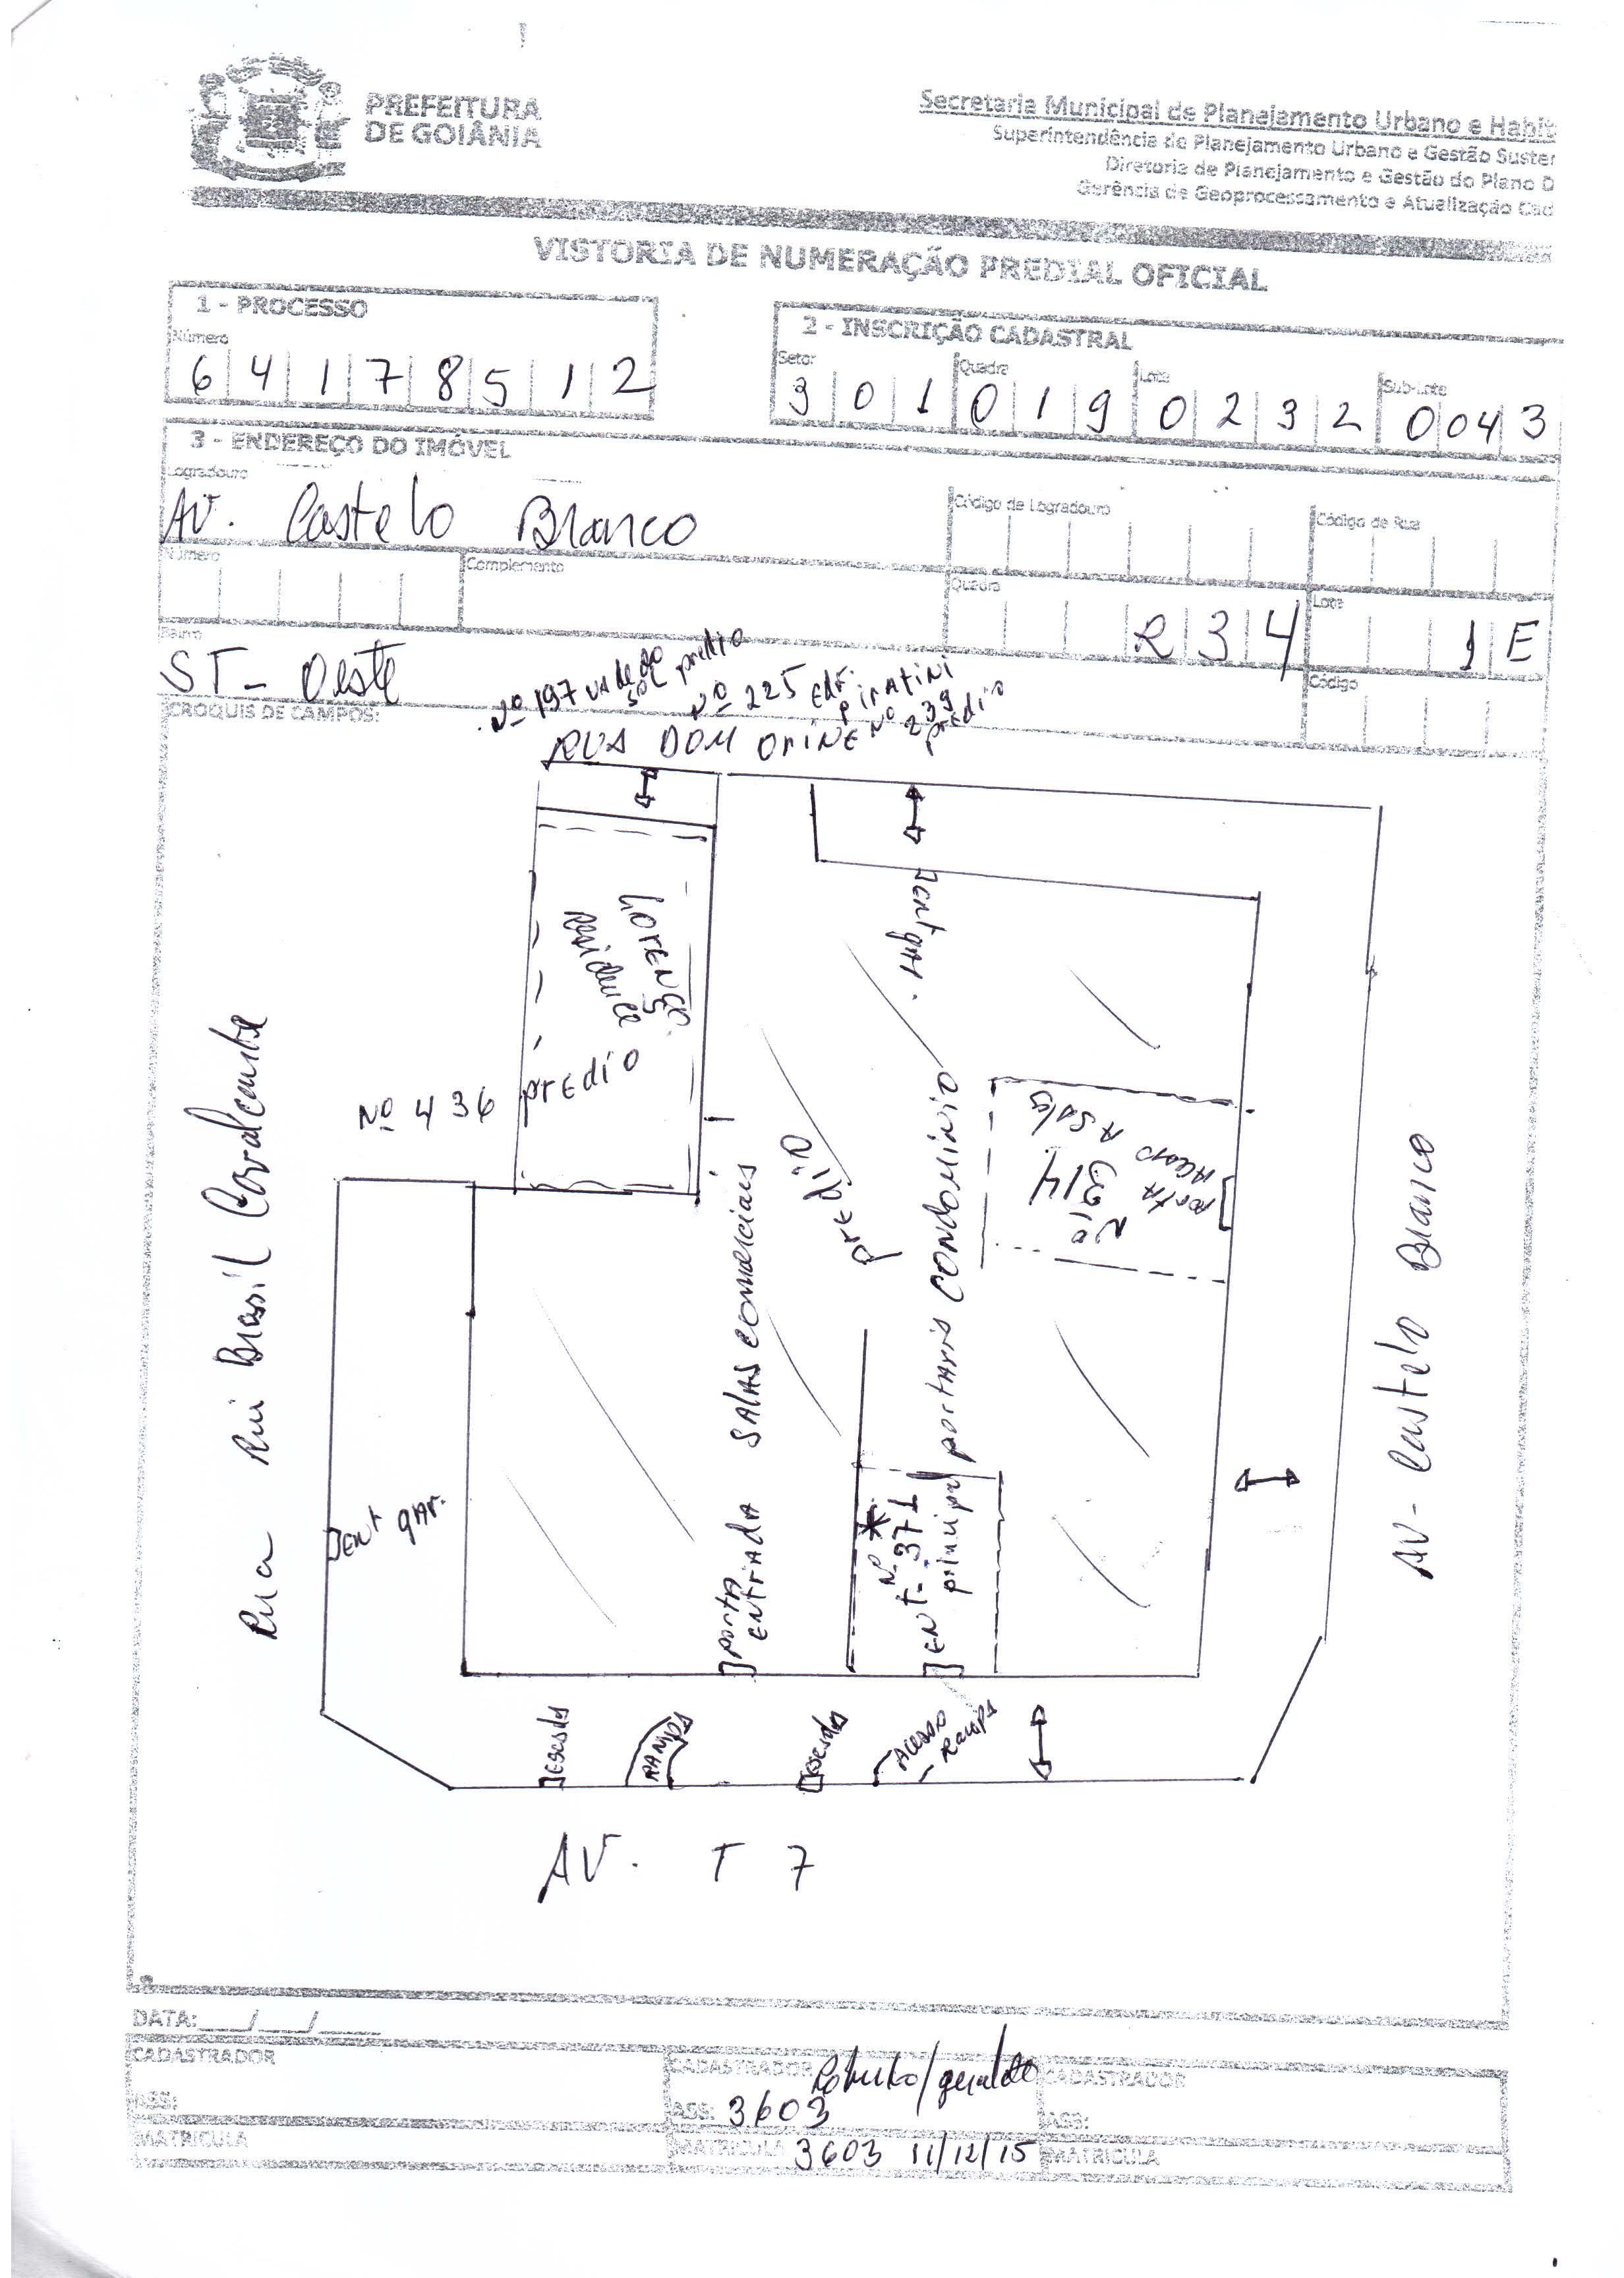 PREFEITURA
DE GOIÂNIA
Secretaria Municipal de Planejamento Urbano e Habit
Superintendência de Planejamento Urbano e Gestão Suster
Diretoria de Planejamento e Gestão do Plano D
Gerência de Geoprocessamento e Atualização Cad
VISTORIA DE NUMERAÇÃO PREDIAL OFICIAL
1 - PROCESSO
Número
6 4 1 7 8 5 1 2
2 - INSCRIÇÃO CADASTRAL
Setor Quadra Lote Sub-Lote
3 0 1 0 1 9 0 2 3 2 0 0 4 3
3 - ENDEREÇO DO IMÓVEL
Logradouro Código de Logradouro Código de Rua
AV. Castelo Branco
Número Complemento Quadra Lote
R 3 4 1 E
Bairro Código
ST - Oeste
CROQUIS DE CAMPOS:
Nº 197 vale do sol predio
Nº 225 Edf. pirAtini
Nº 239 predio
RUA DOM OriNE
residence
Nº 436 predio
Ent gAr.
Rua Rui Brasil Cavalcante
Ent gAr.
SALAS comerciais
portA
ENTrADA
prEdiO
portAriS CONDOMíNiO
Nº 314
portA
A SAlas
*
Nº 371
ENT-
principal
AV- Castelo Branco
escada
RAMPA
escada
Acesso
rampa
AV. T 7
DATA: __/__/__
CADASTRADOR CADASTRADOR CADASTRADOR
Roberto/geraldo
ASS: ASS: 3603 ASS:
MATRICULA MATRICULA 3603 11/12/15 MATRICULA